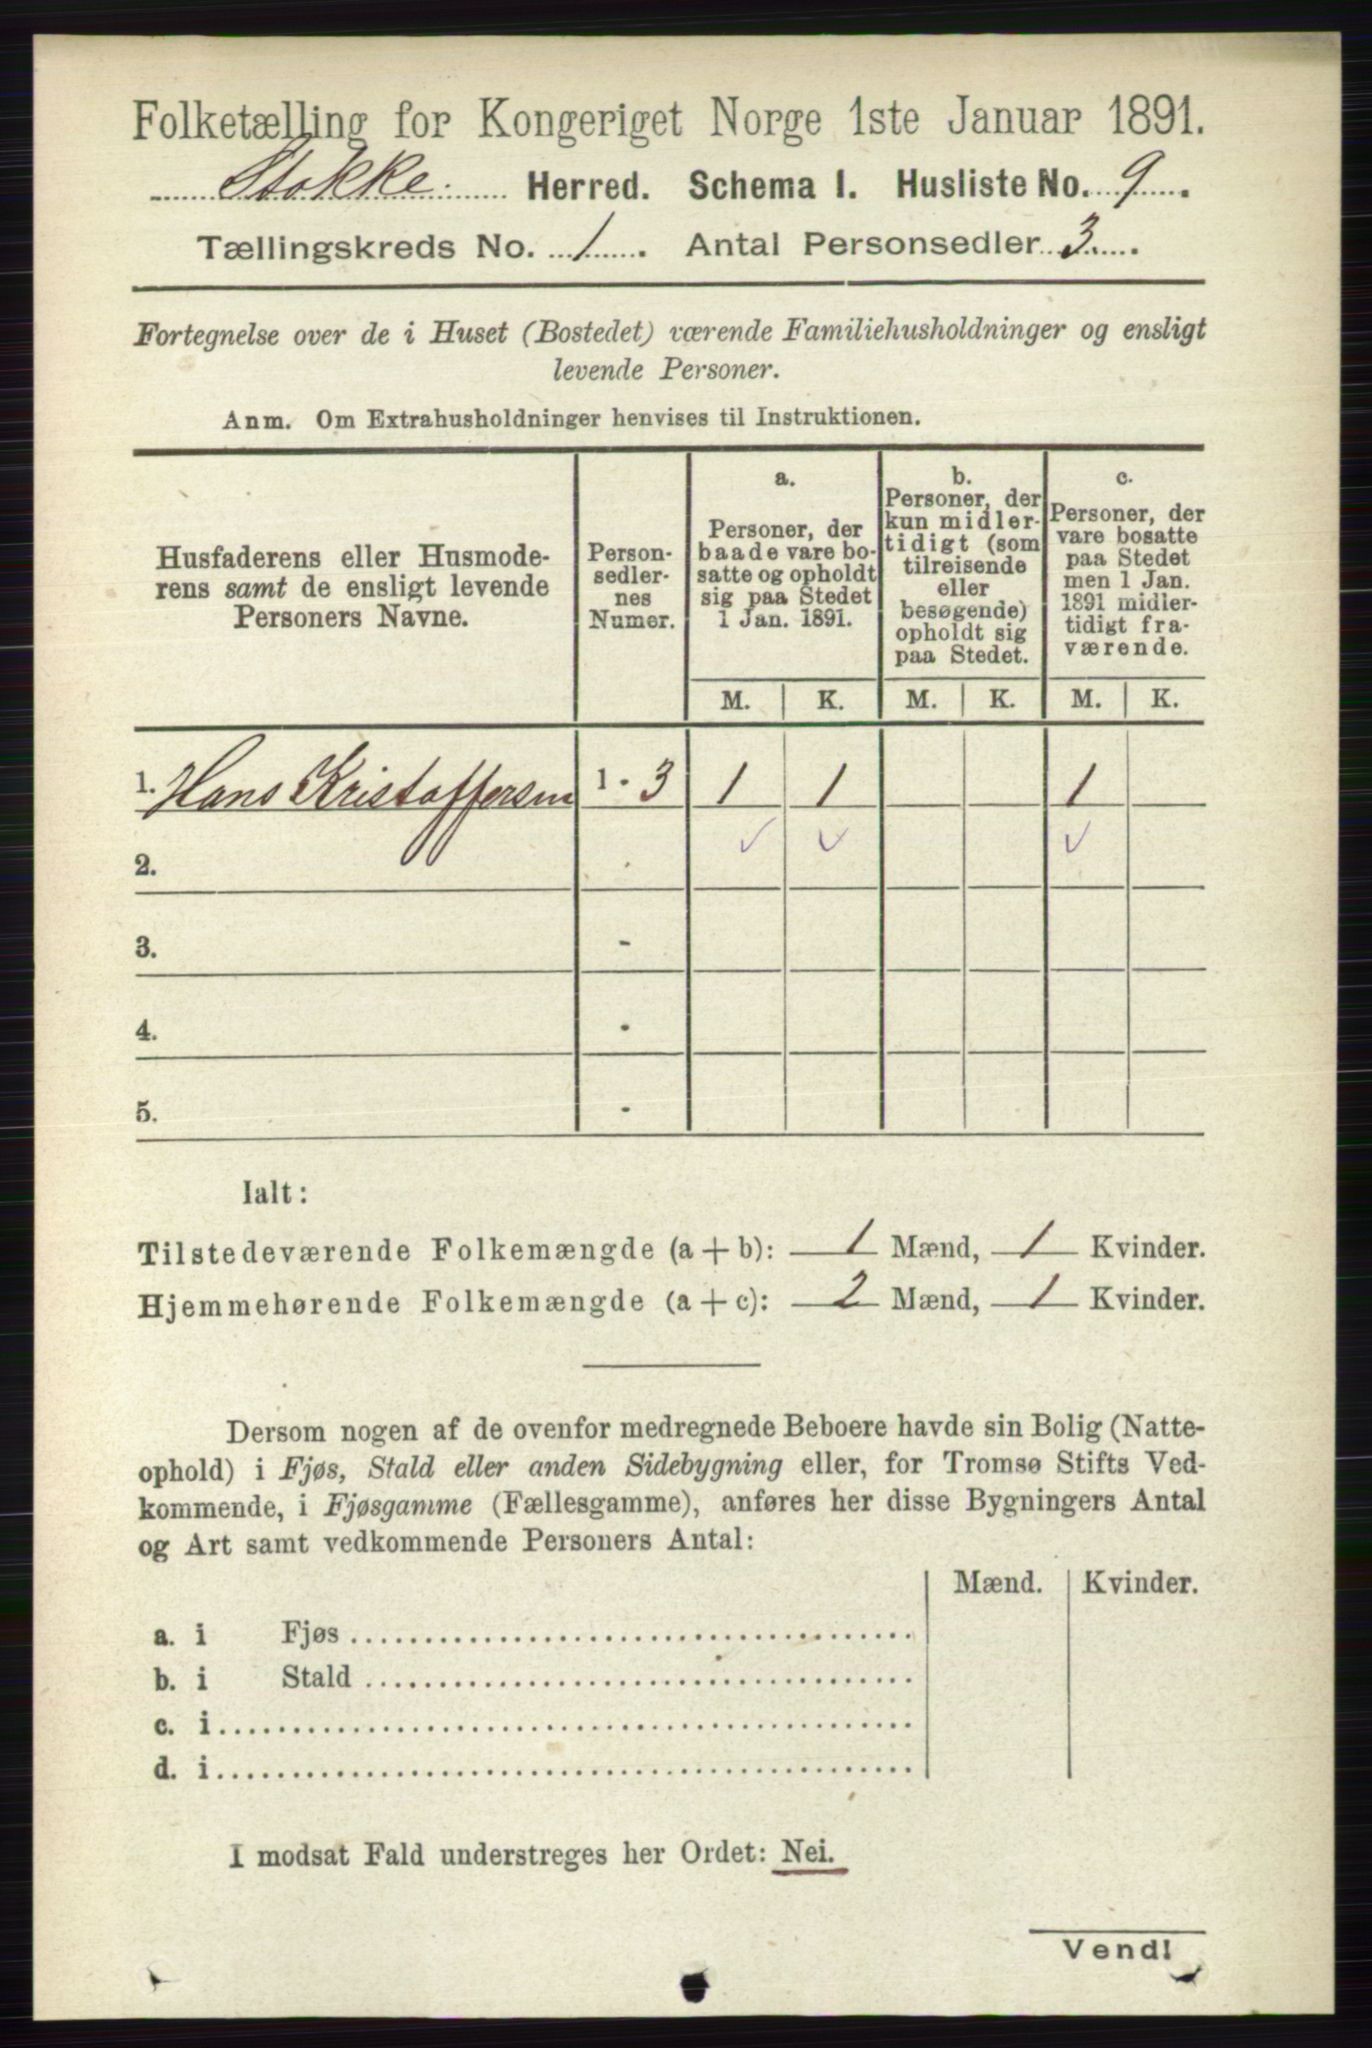 Folketælling for Kongeriget Norge 1ste Januar 1891.
Stokke Herred. Schema I. Husliste No. 9.
Tællingskreds No. 1. Antal Personsedler 3.
Fortegnelse over de i Huset (Bostedet) værende Familiehusholdninger og ensligt
levende Personer.
Anm. Om Extrahusholdninger henvises til Instruktionen.
Husfaderens eller Husmode-
rens samt de ensligt levende
Personers Navne.
Person-
sedler-
nes
Numer.
a.
Personer, der
baade vare bo-
satte og opholdt
sig paa Stedet
1 Jan. 1891.
b.
Personer, der
kun midler-
tidigt (som
tilreisende
eller
besøgende)
opholdt sig
paa Stedet.
c.
Personer, der
vare bosatte
paa Stedet
men 1 Jan.
1891 midler-
tidigt fra-
værende.
M. K. M. K. M. K.
1. Hans Kristoffersen 1 - 3 1 1 1
2.
3. -
4.
5.
Ialt:
Tilstedeværende Folkemængde (a + b): 1 Mænd, 1 Kvinder.
Hjemmehørende Folkemængde (a + c): 2 Mænd, 1 Kvinder.
Dersom nogen af de ovenfor medregnede Beboere havde sin Bolig (Natte-
ophold) i Fjøs, Stald eller anden Sidebygning eller, for Tromsø Stifts Ved-
kommende, i Fjøsgamme (Fællesgamme), anføres her disse Bygningers Antal
og Art samt vedkommende Personers Antal:
Mænd. Kvinder.
a. i Fjøs
b. i Stald
c. i
d. i
I modsat Fald understreges her Ordet: Nei.
Vend!